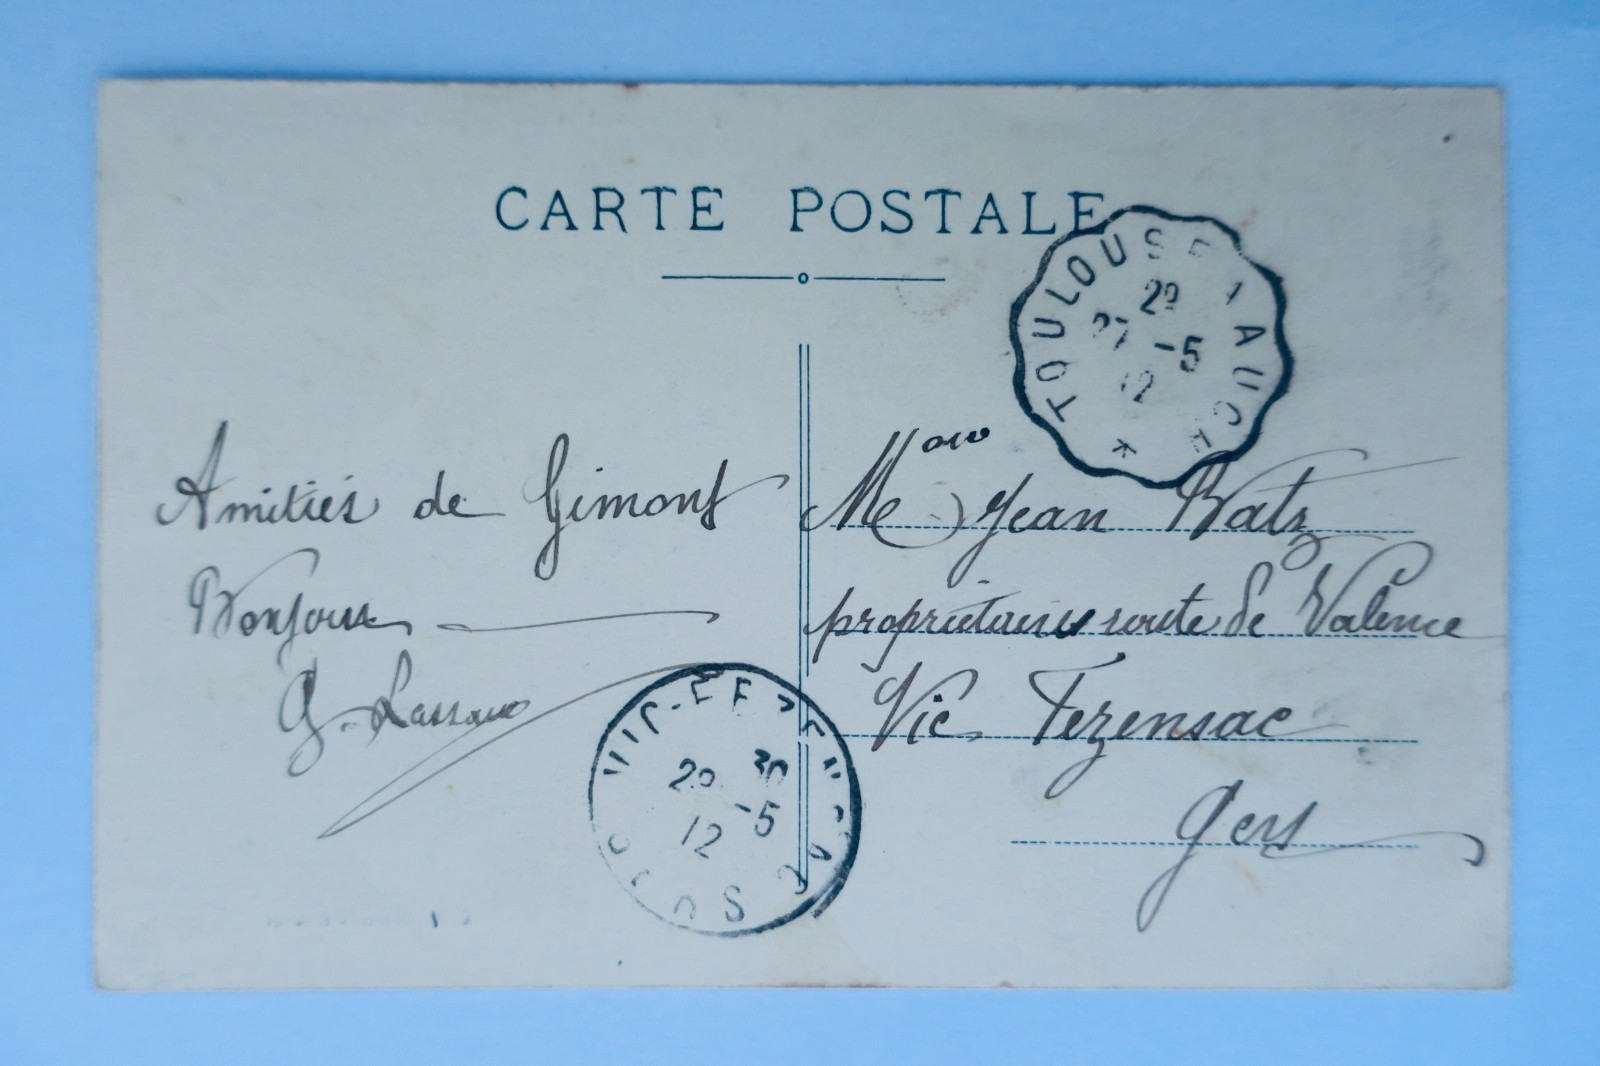 CARTE POSTALE
TOULOUSE A AUCH
27 -5
12
Amitiés de Gimont
Bonjour
G.
Jean Batz
propriétaire route de Valence
Vic Fezensac
Gers
VIC-FEZENSAC
30
12 -5